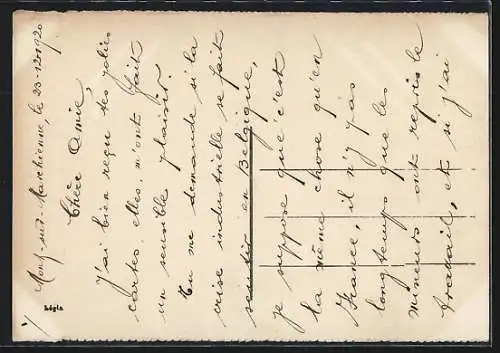 Mont-sur-Marchienne, le 23-12-1920
Chère Amie,
J'ai bien reçu tes jolies
cartes, elles m'ont fait
un sensible plaisir.
Tu me demande si la
crise industrielle se fait
sentir en Belgique,
je suppose que c'est
la même chose qu'en
France, il n'y pas
longtemps que les
mineurs ont repris le
travail, et si j'ai
Légia
1/